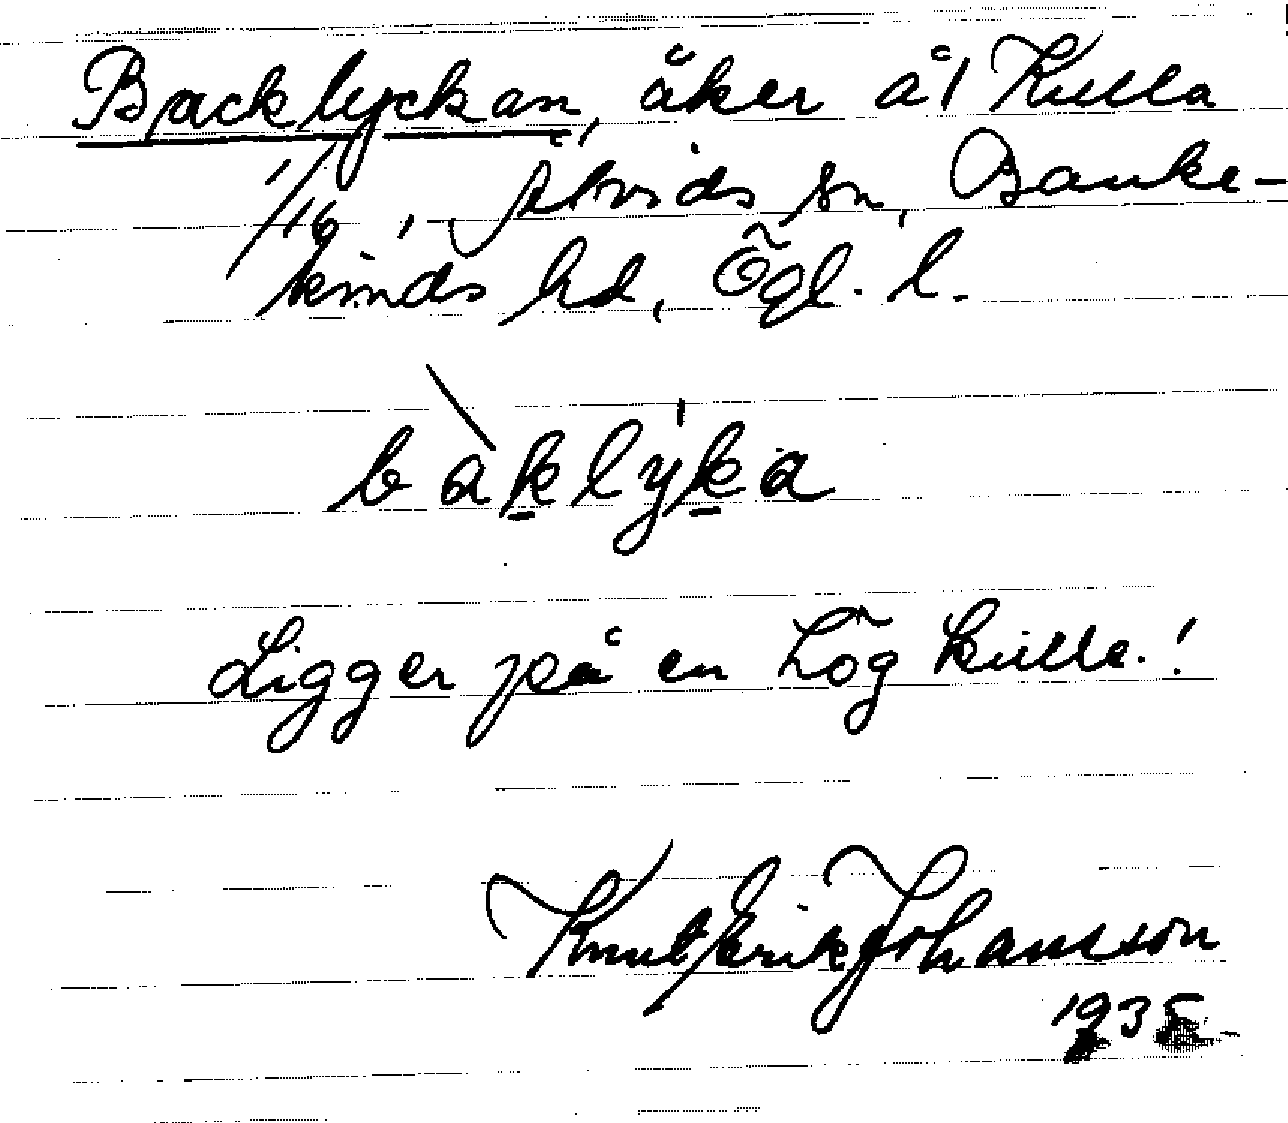 Backlyckan, åker å Kulla
1/16, Åtvids sn, Banke-
kinds hd, Ögl. l.
bàklýka
Ligger på en hög kulle.!
Knut Erik Johansson
1935